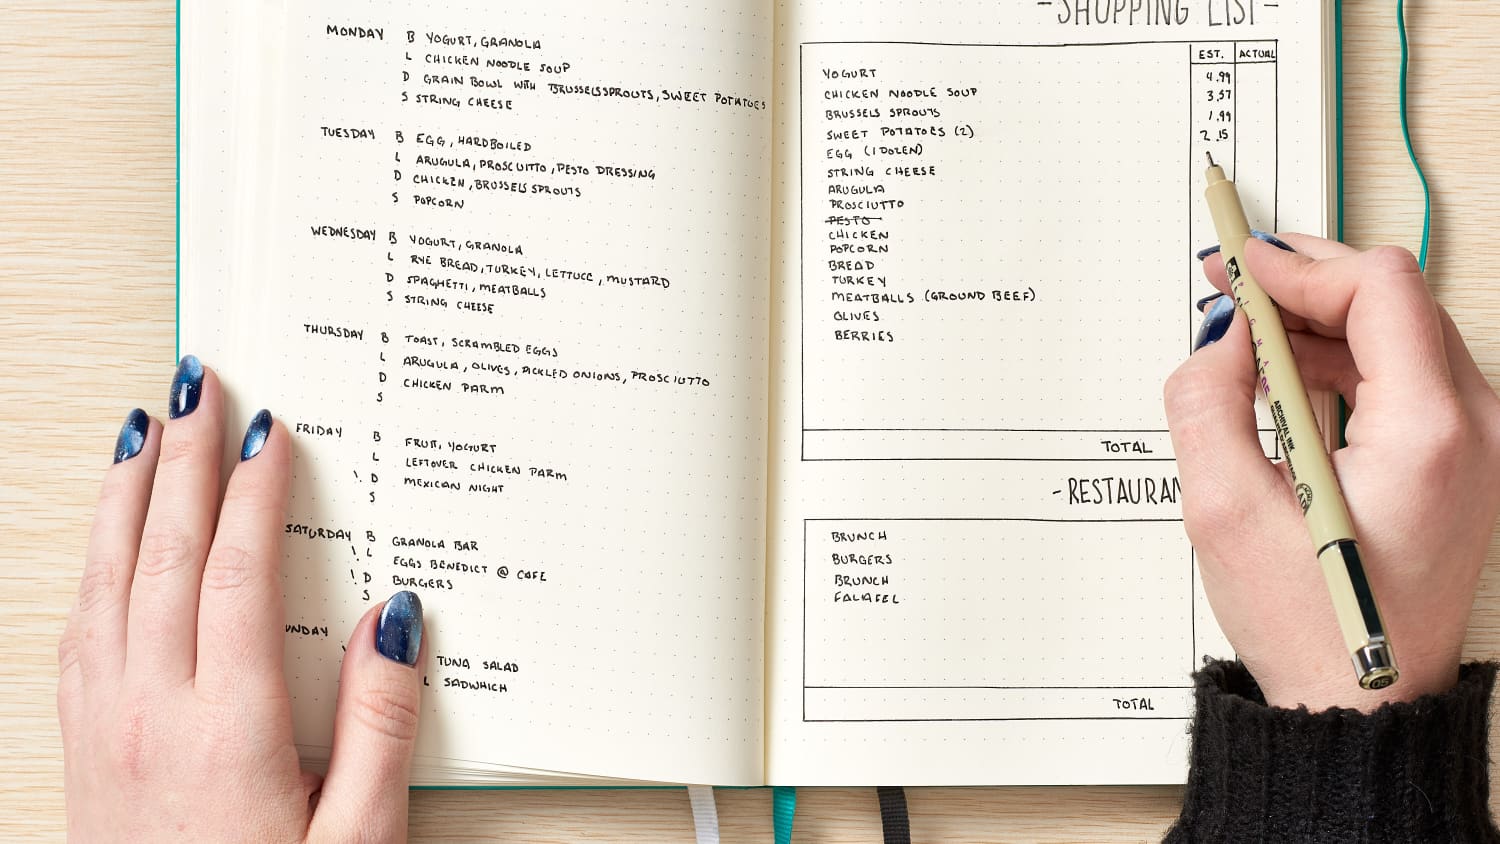 MONDAY B YOGURT, GRANOLA
L CHICKEN NOODLE SOUP
D GRAIN BOWL WITH BRUSSELS SPROUTS, SWEET POTATOES
S STRING CHEESE
TUESDAY B EGG, HARDBOILED
L ARUGULA, PROSCIUTTO, PESTO DRESSING
D CHICKEN, BRUSSELS SPROUTS
S POPCORN
WEDNESDAY B YOGURT, GRANOLA
L RYE BREAD, TURKEY, LETTUCE, MUSTARD
D SPAGHETTI, MEATBALLS
S STRING CHEESE
THURSDAY B TOAST, SCRAMBLED EGGS
L ARUGULA, OLIVES, PICKLED ONIONS, PROSCIUTTO
D CHICKEN PARM
S
FRIDAY B FRUIT, YOGURT
L LEFTOVER CHICKEN PARM
! D MEXICAN NIGHT
S
SATURDAY B GRANOLA BAR
! L EGGS BENEDICT @ CAFE
! D BURGERS
S
UNDAY
TUNA SALAD
L SADWHICH
-SHOPPING LIST-
EST. ACTUAL
YOGURT 4.99
CHICKEN NOODLE SOUP 3.57
BRUSSELS SPROUTS 1.99
SWEET POTATOES (2) 2.15
EGG (1 DOZEN)
STRING CHEESE
ARUGULA
PROSCIUTTO
PESTO
CHICKEN
POPCORN
BREAD
TURKEY
MEATBALLS (GROUND BEEF)
OLIVES
BERRIES
TOTAL
-RESTAURAN
BRUNCH
BURGERS
BRUNCH
FALAFEL
TOTAL
ARCHIVAL INK
05